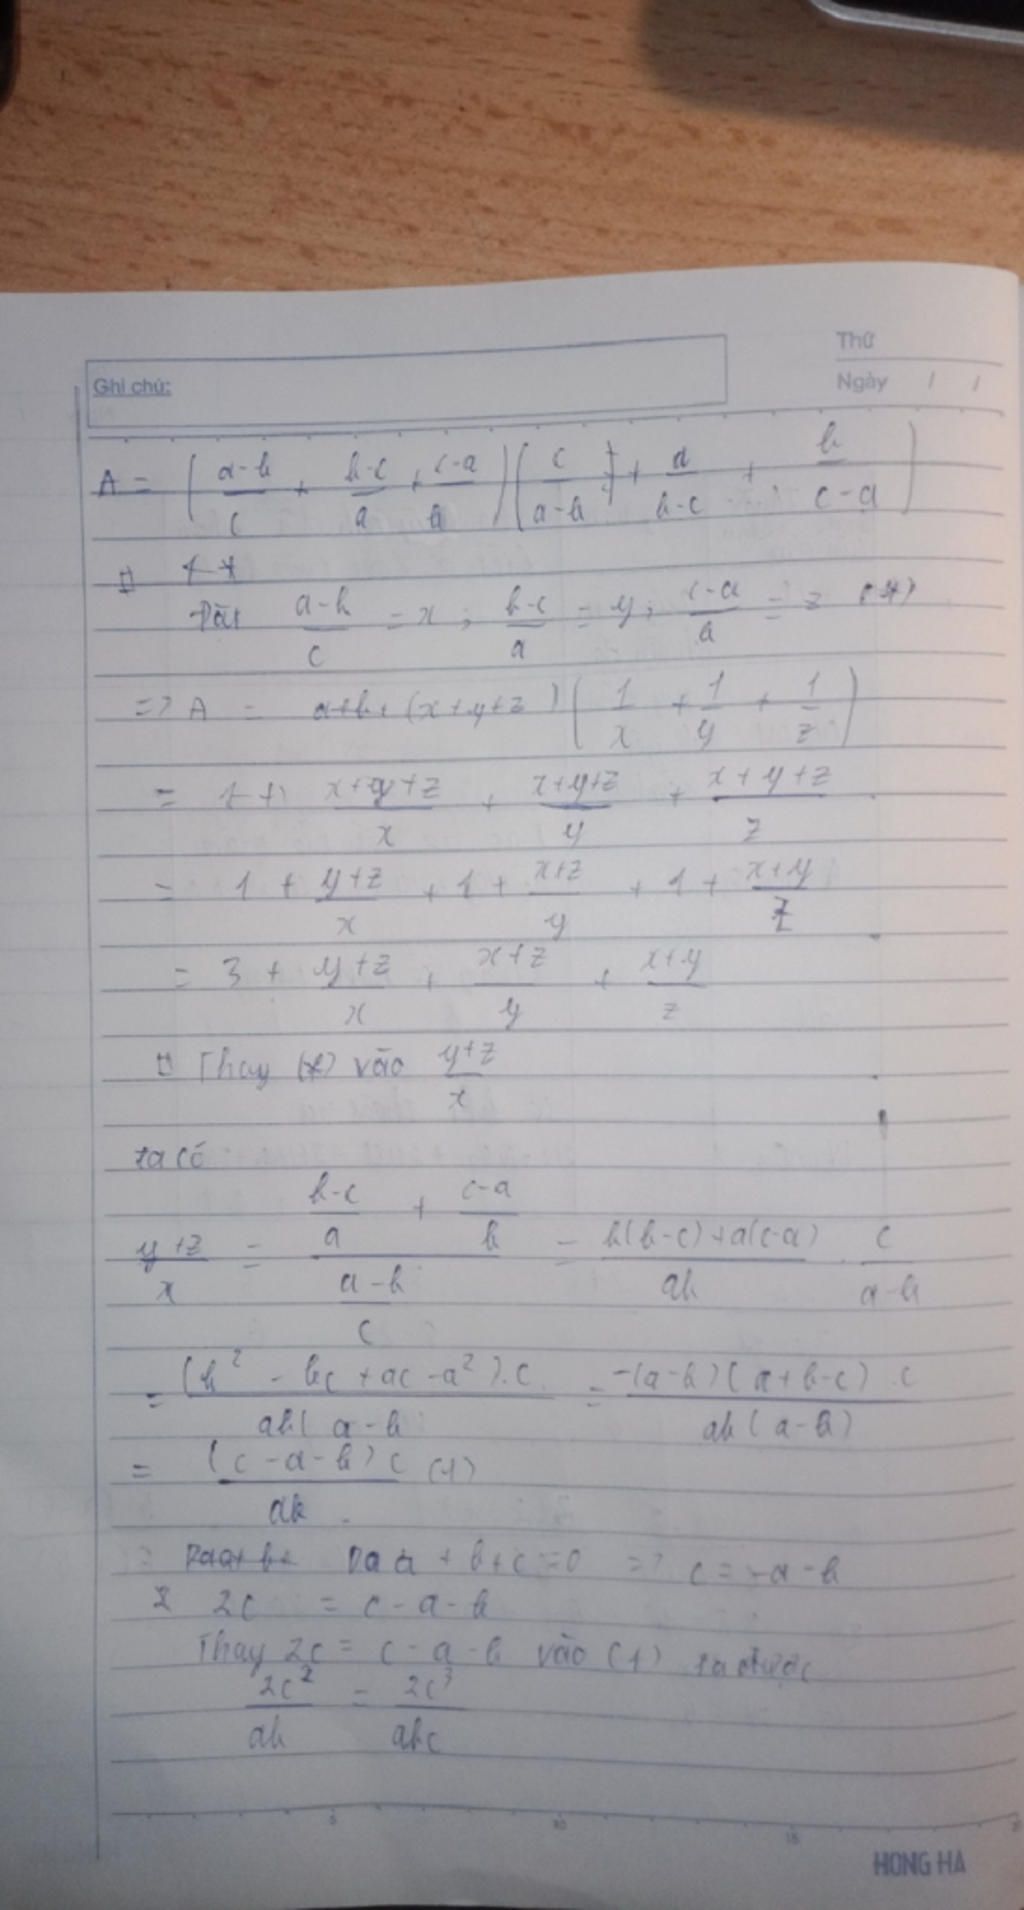 Thứ
Ghi chú:
Ngày / /
A = ( (a-b)/c + (b-c)/a + (c-a)/b ) ( c/(a-b) + a/(b-c) + b/(c-a) )
Đặt (a-b)/c = x ; (b-c)/a = y ; (c-a)/b = z (*)
=> A = (x+y+z) ( 1/x + 1/y + 1/z )
= (x+y+z)/x + (x+y+z)/y + (x+y+z)/z
= 1 + (y+z)/x + 1 + (x+z)/y + 1 + (x+y)/z
= 3 + (y+z)/x + (x+z)/y + (x+y)/z
Thay (*) vào (y+z)/x
ta có
(y+z)/x = ((b-c)/a + (c-a)/b)/((a-b)/c) = (b(b-c)+a(c-a))/ab . c/(a-b)
= (b² - bc + ac - a²).c/ab(a-b = -(a-b)(a+b-c).c/ab(a-b)
= (c-a-b)c/ab (1)
Do a + b + c = 0 => c = -a-b
2c = c-a-b
Thay 2c = c-a-b vào (1) ta được
2c²/ab = 2c³/abc
5 10 15
HONG HA